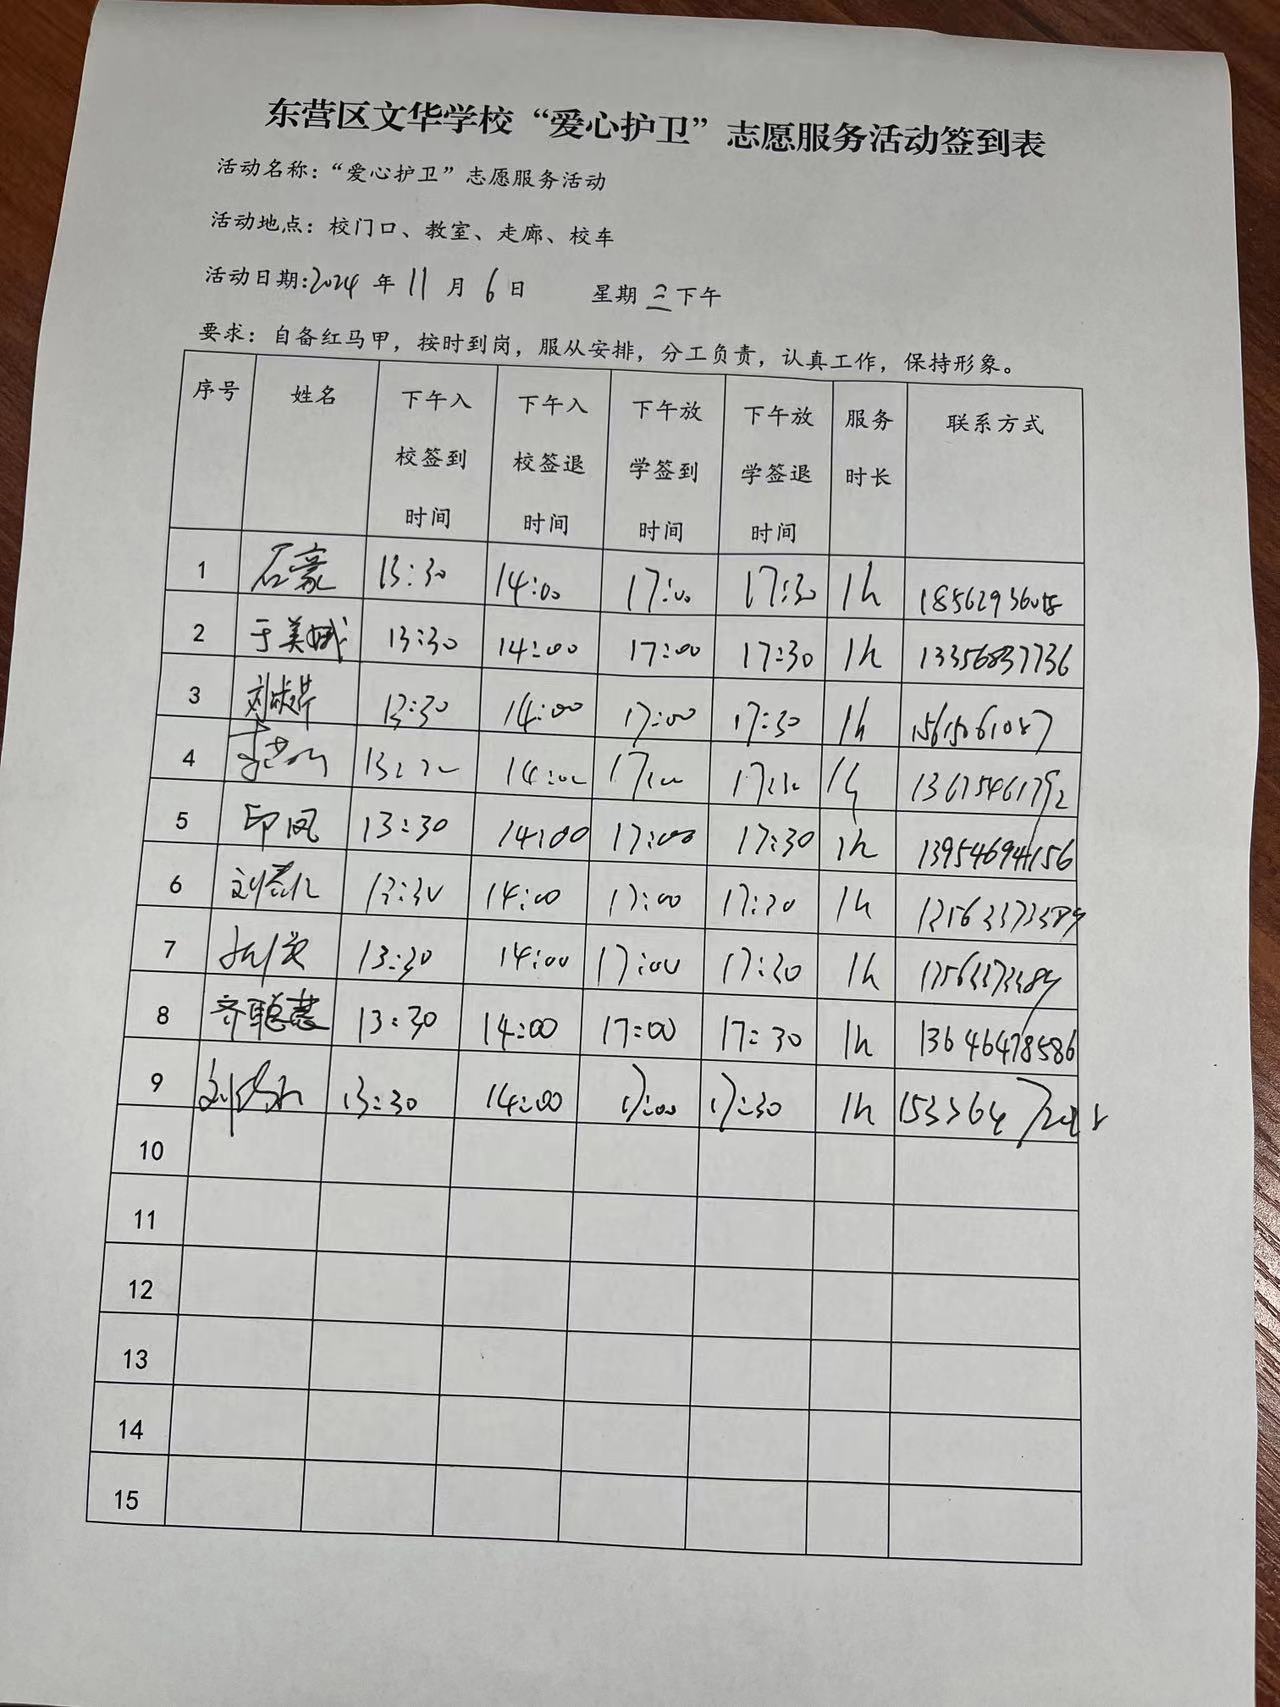 东营区文华学校“爱心护卫”志愿服务活动签到表
活动名称：“爱心护卫”志愿服务活动
活动地点：校门口、教室、走廊、校车
活动日期:2024 年 11 月 6 日 星期 三 下午
要求：自备红马甲，按时到岗，服从安排，分工负责，认真工作，保持形象。
序号 姓名 下午入校签到时间 下午入校签退时间 下午放学签到时间 下午放学签退时间 服务时长 联系方式
1 石豪 13:30 14:00 17:00 17:30 1h
2 于美娥 13:30 14:00 17:00 17:30 1h 13356837736
3 13:30 14:00 17:00 17:30 1h 15615061087
4 14:00 17:00 13675461792
5 印凤 13:30 14:00 17:00 17:30 1h 13954694156
6 13:30 14:00 17:00 17:30 1h
7 13:30 14:00 17:00 17:30 1h
8 齐聪慧 13:30 14:00 17:00 17:30 1h 13646478586
9 13:30 14:00 17:00 17:30 1h
10
11
12
13
14
15